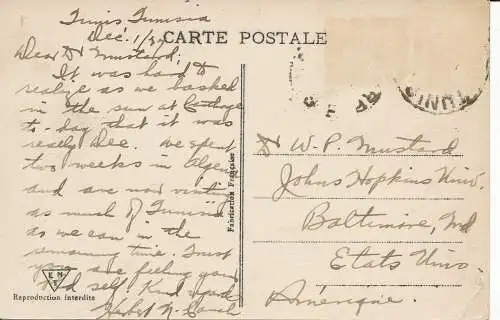 Tunis Tunisia
Dec. 1/
CARTE POSTALE
Dear Dr Mustard;
It was hard to
realize as we basked
in the sun at Carthage
to-day that it was
really Dec. We spent
two weeks in Algeria
and are now visiting
as much of Tunisia
as we can in the
remaining time. I trust
you are feeling your
old self. Kind regards
Herbert N.
Fabrication Française
Reproduction Interdite
TUNIS
Dr W. P. Mustard
Johns Hopkins Univ.
Baltimore, Md
Etats Unis
Amérique.